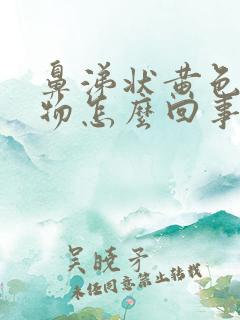 鼻涕状黄色
物怎麼回事
吴晓矛
未经同意禁止转载